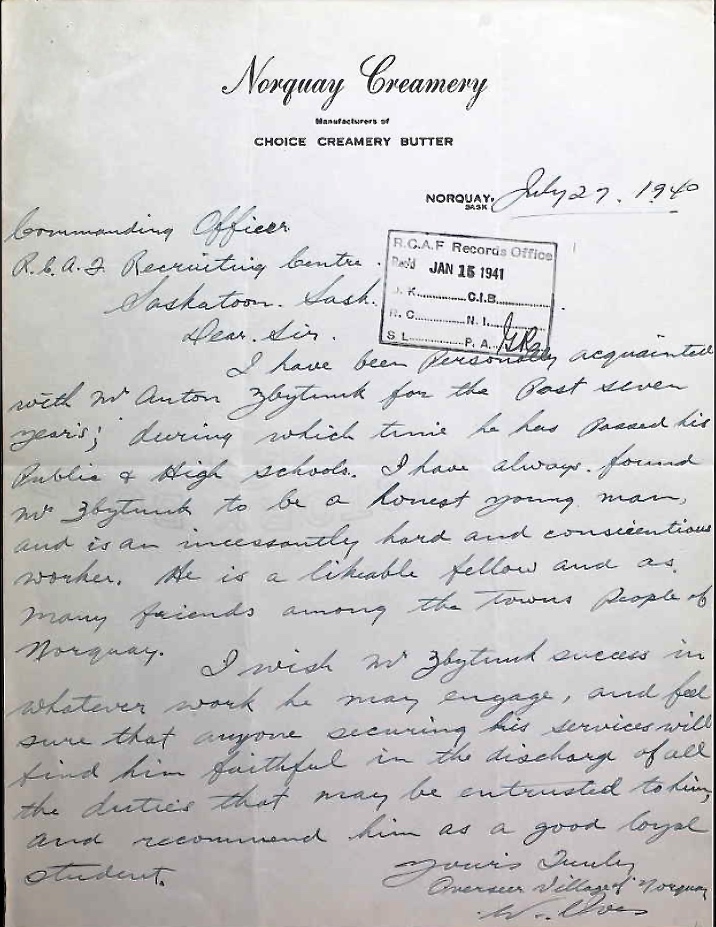 Norquay Creamery
Manufacturers of
CHOICE CREAMERY BUTTER
NORQUAY, SASK July 27. 1940
Commanding Officer
R.C.A.F Recruiting Centre.
Saskatoon. Sask.
Dear. Sir.
R.C.A.F Records Office
Rec'd JAN 15 1941
J. K. C.I.B.
R. C. N. I.
S L P. A.
I have been Personally acquainted
with Mr Anton Zbytnuk for the Past seven
years; during which time he has Passed his
Public & High schools. I have always. found
Mr Zbytnuk to be a honest young man,
and is an incessantly hard and consicentious
worker. He is a likeable fellow and as
many friends among the Towns People of
Norquay.
I wish Mr Zbytnuk success in
whatever work he may engage, and feel
sure that anyone securing his services will
find him faithful in the discharge of all
the duties that may be entrusted to him,
and recommend him as a good loyal
student.
Yours Truly
Overseer Village of Norquay
W.